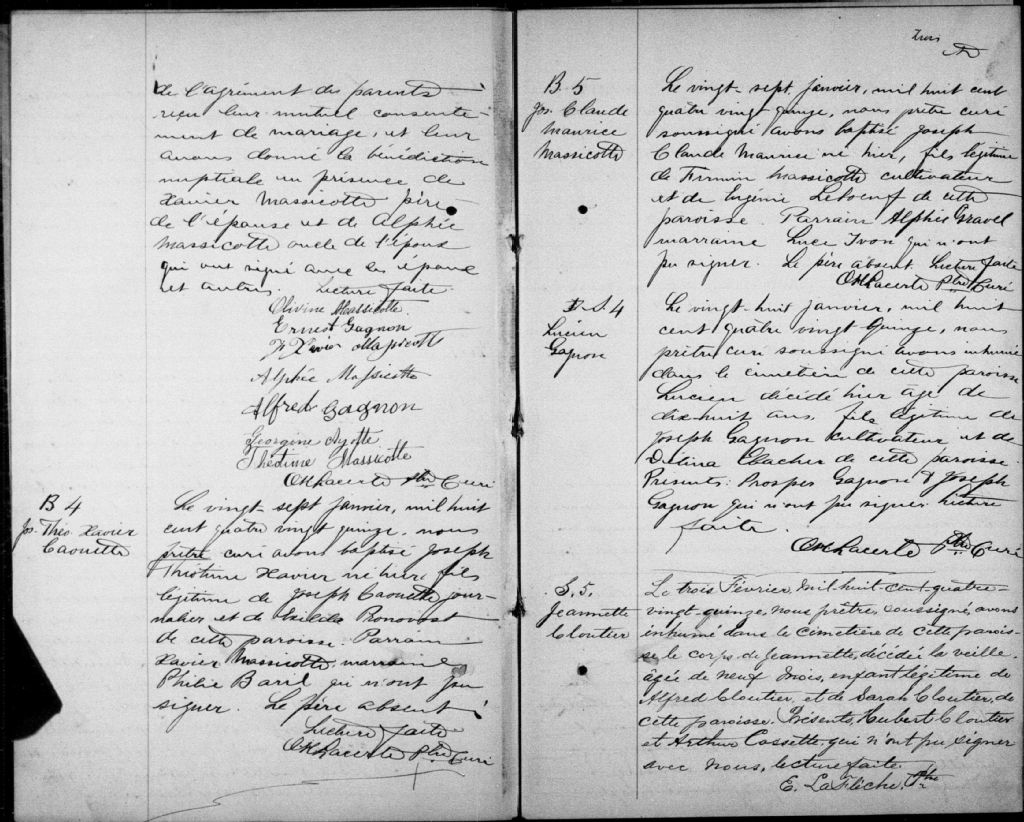 de l'agrément des parents
reçu leur mutuel consente-
ment de mariage, et leur
avons donné la bénédiction
nuptiale en présence de
Xavier Massicotte père
de l'épouse et de Alphée
Massicotte oncle de l'époux
qui ont signé avec les époux
et autres. Lecture faite.
Olivine Massicotte
Ernest Gagnon
F Xavier Massicotte
Alphée Massicotte
Alfred Gagnon
Georgine Ayotte
Théotime Massicotte
OHLacerte Ptre Curé
B 4
Jos. Théo. Xavier
Caouette
Le vingt-sept janvier, mil huit
cent quatre vingt quinze, nous
prêtre curé avons baptisé Joseph
Théotime Xavier né hier, fils
légitime de Joseph Caouette jour-
nalier et de Exilda Ronovost
de cette paroisse. Parrain
Xavier Massicotte, marraine
Philie Baril qui n'ont pu
signer. Le père absent
Lecture faite
OHLacerte Ptre Curé
Trois
B. 5
Jos. Claude
Maurice
Massicotte
Le vingt-sept janvier, mil huit cent
quatre vingt quinze, nous prêtre curé
soussigné avons baptisé Joseph
Claude Maurice né hier, fils légitime
de Firmin Massicotte cultivateur
et de Eugénie Leboeuf de cette
paroisse. Parrain Alphée Gravel
marraine Luce Ivon qui n'ont
pu signer. Le père absent. Lecture faite
OHLacerte Ptre Curé
S 4
Lucien
Gagnon
Le vingt-huit janvier, mil huit
cent quatre vingt quinze, nous
prêtre curé soussigné avons inhumé
dans le cimetière de cette paroisse
Lucien décédé hier âgé de
dix-huit ans fils légitime de
Joseph Gagnon cultivateur et de
Délina Ebacher de cette paroisse.
Présents: Prosper Gagnon & Joseph
Gagnon qui n'ont pu signer lecture
faite.
OHLacerte Ptre Curé
S. 5.
Jeannette
Cloutier
Le trois Février, mil-huit-cent-quatre-
vingt-quinze, nous prêtre, soussigné, avons
inhumé dans le cimetière de cette parois-
se le corps de Jeannette, décédé la veille
âgée de neuf mois, enfant légitime de
Alfred Cloutier, et de Sarah Cloutier, de
cette paroisse. Présents, Hubert Cloutier
et Arthur Cossette, qui n'ont pu signer
avec nous, lecture faite.
E. LaFlèche, Ptre